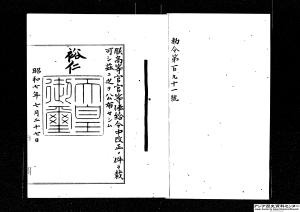 勅令第百九十一號
朕高等官官等俸給令中改正ノ件ヲ裁
可シ茲ニ之ヲ公布セシム
裕仁
天皇御璽
昭和七年七月二十七日